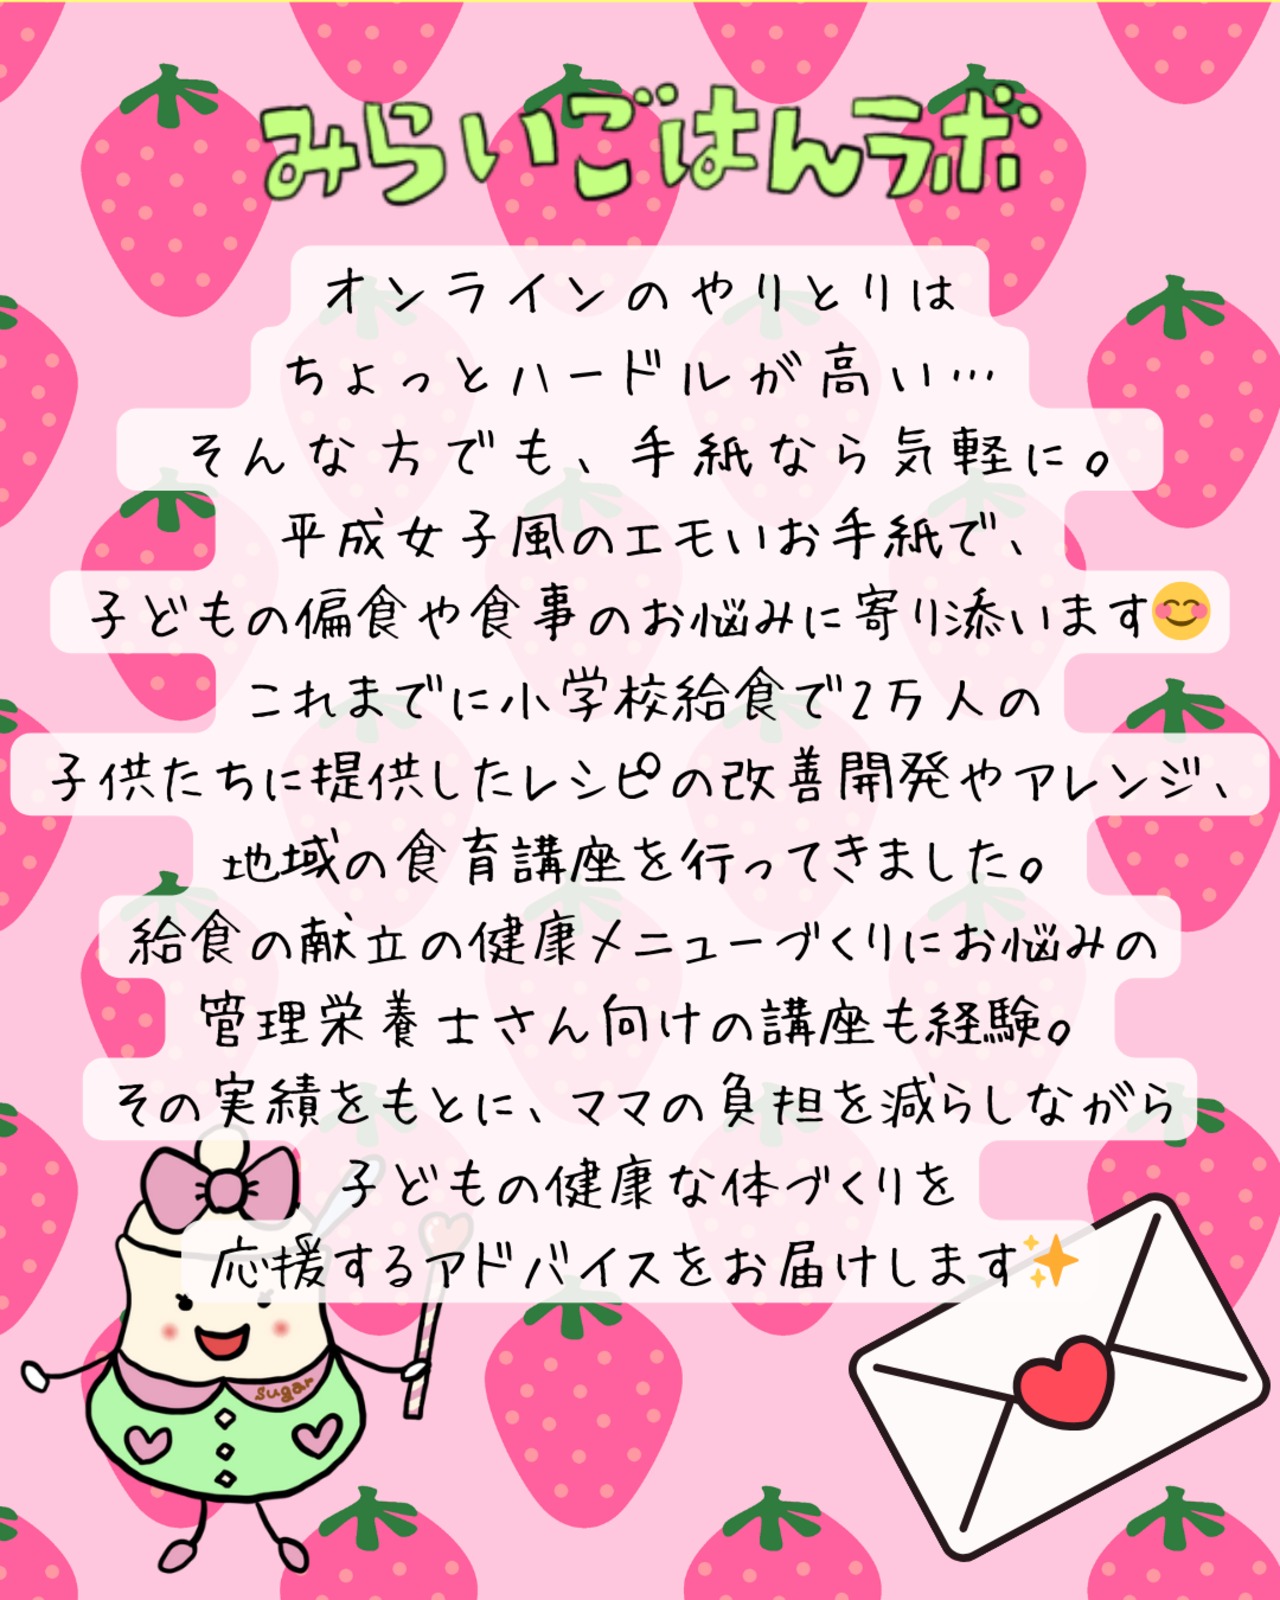 みらいごはんラボ
オンラインのやりとりは
ちょっとハードルが高い…
そんな方でも、手紙なら気軽に。
平成女子風のエモいお手紙で、
子どもの偏食や食事のお悩みに寄り添います😊
これまでに小学校給食で2万人の
子供たちに提供したレシピの改善開発やアレンジ、
地域の食育講座を行ってきました。
給食の献立の健康メニューづくりにお悩みの
管理栄養士さん向けの講座も経験。
その実績をもとに、ママの負担を減らしながら
子どもの健康な体づくりを
応援するアドバイスをお届けします✨
sugar